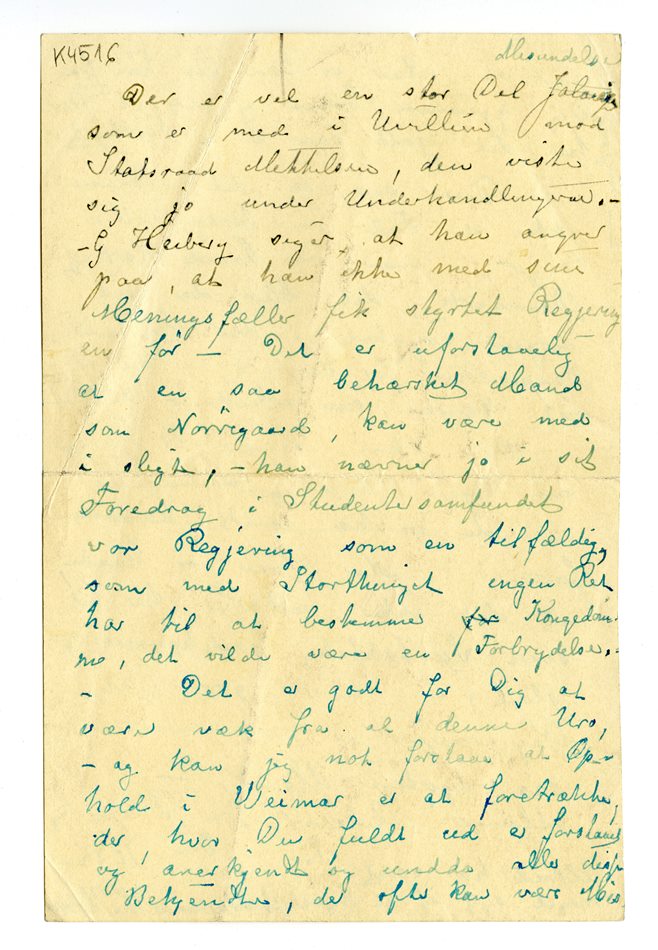 K4516
Misundelse
Der er vel en stor Del
som er med i Uvillien mod
Statsraad Mekkelsen, den viste
sig jo under Underhandlingerne. –
– G Heiberg siger, at han angrer
paa, at han ikke med sine
Meningsfæller fik styrtet Regjering
en før – Det er uforstaaelig
at en saa behærsket Mand
som Nörregaard, kan være med
i sligt, – han nævner jo i sit
Foredrag i Studentersamfundet
vor Regjering som en tilfældig,
som med Storthinget ingen Ret
har til at bestemme for Kongedöm-
me, det vilde være en Forbrydelse. –
– Det er godt for Dig at
være væk fra al denne Uro,
– og kan jeg nok forstaae at Op-
hold i Weimar er at foretrække,
der, hvor Du fuldt ud er forstaaet
og anerkjendt og undda alle disse
Bekjendte, de ofte kan være Mis